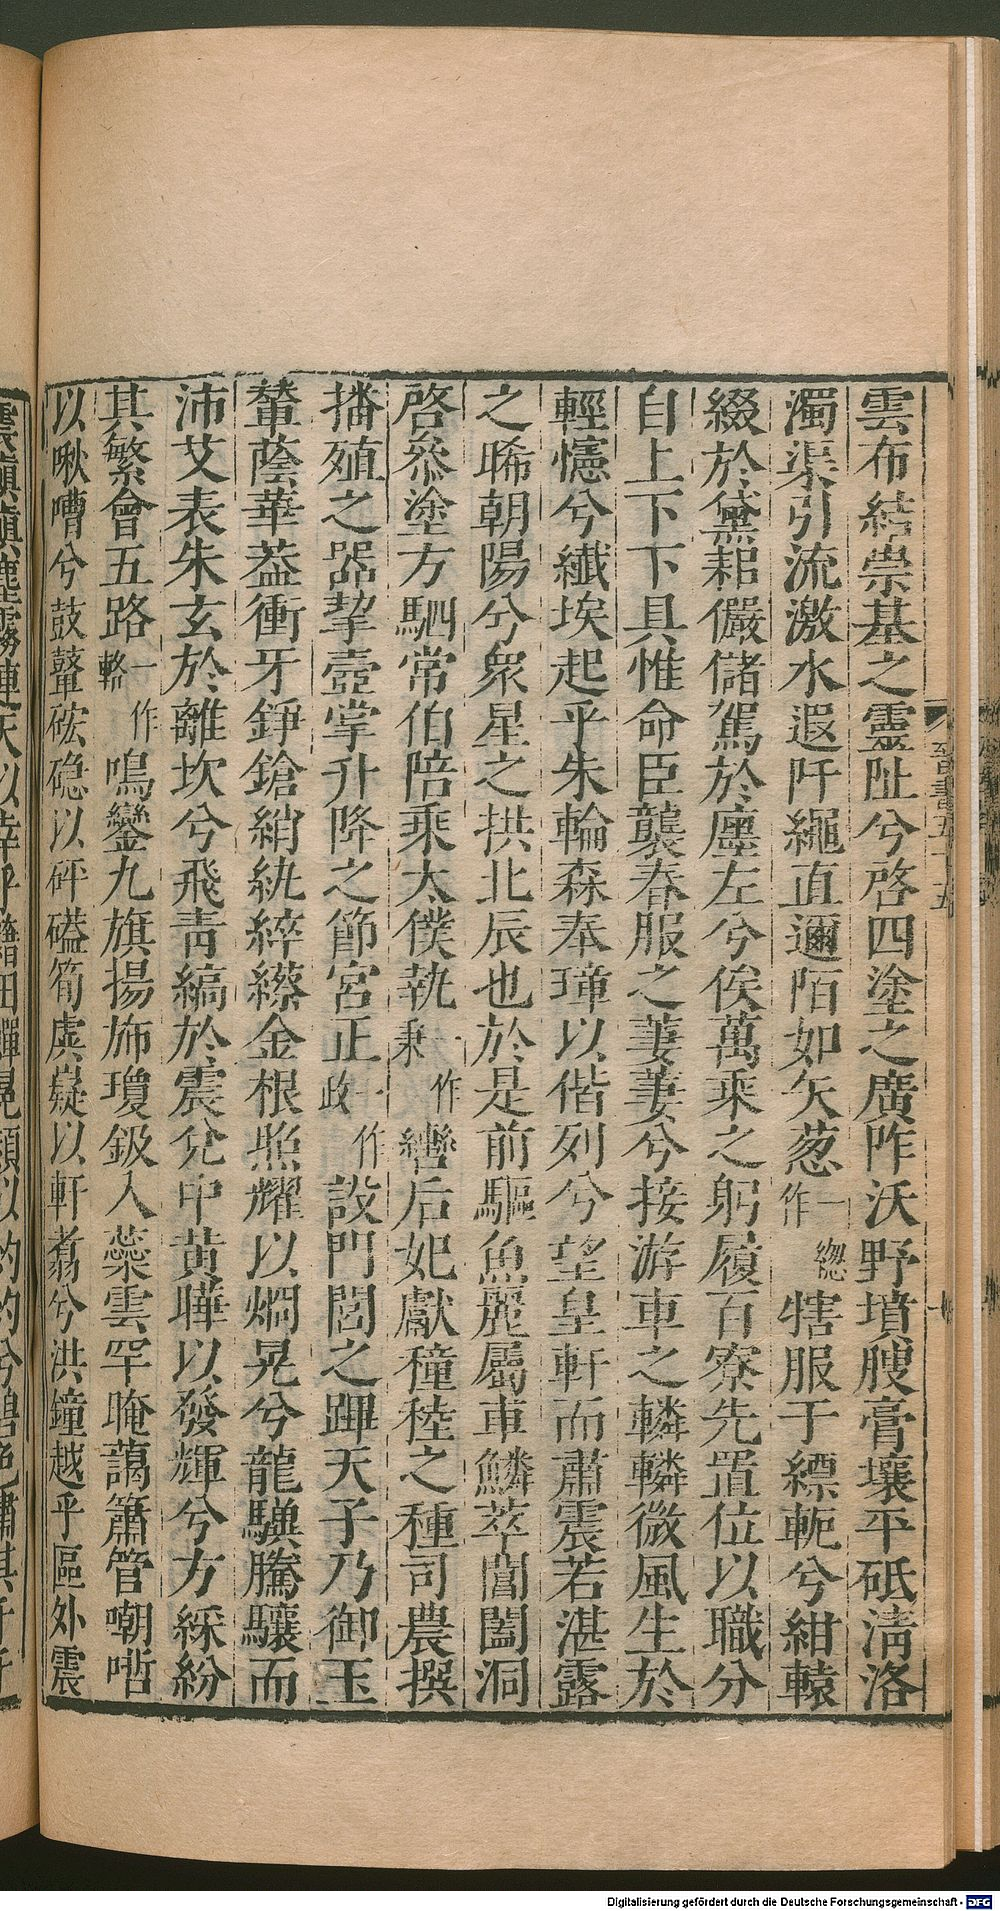 雲布結崇基之靈阯兮啓四塗之廣阼沃野墳腴膏壤平砥淸洛
濁渠引流激水遐阡繩直邇陌如矢葱一作緫犗服于縹軛兮紺轅
綴於黛耜儼儲駕於廛左兮俟萬乘之躬履百寮先置位以職分
自上下下具惟命臣襲春服之萋萋兮接游車之轔轔微風生於
輕幰兮纖埃起乎朱輪森奉璋以偕列兮望皇軒而肅震若湛露
之晞朝陽兮衆星之拱北辰也於是前驅魚麗屬車鱗萃閶闔洞
啓叅塗方駟常伯陪乘太僕執一作秉轡后妃獻穜稑之種司農撰
播殖之器挈壺掌升降之節宮正一作政設門閭之蹕天子乃御玉
輦蔭華葢衝牙錚鎗綃紈綷縩金根照耀以烱晃兮龍驥騰驤而
沛艾表朱玄於離坎兮飛靑縞於震兌中黃曄以發輝兮方綵紛
其繁會五路一作輅鳴鑾九旗揚斾瓊鈒入蘂雲罕晻藹簫管嘲哳
以啾嘈兮鼓鼙硡隐以砰磕筍虡嶷以軒翥兮洪鐘越乎區外震
晉書五十五
Digitalisierung gefördert durch die Deutsche Forschungsgemeinschaft - DFG